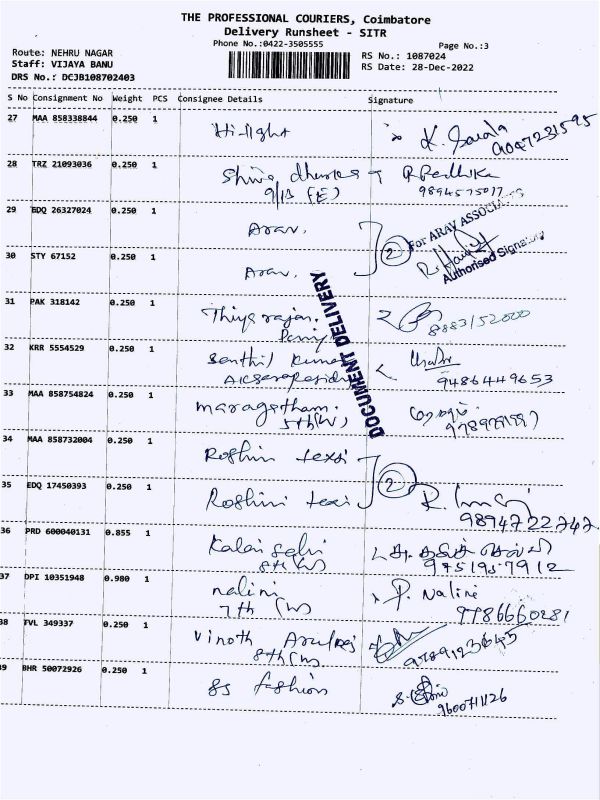 THE PROFESSIONAL COURIERS, Coimbatore
Delivery Runsheet - SITR
Phone No.:0422-3505555
Page No.:3
Route: NEHRU NAGAR
Staff: VIJAYA BANU
DRS No.: DCJB108702403
RS No.: 1087024
RS Date: 28-Dec-2022
S No Consignment No Weight PCS Consignee Details Signature
27 MAA 858338844 0.250 1 Hi-light K. Sarala
9047231595
28 TRZ 21093036 0.250 1
9/13 (E)
9894575017
29 BDQ 26327024 0.250 1 Arav. 2 For ARAV ASSOCIATES
30 STY 67152 0.250 1 Arav. Authorised Signatory
DOCUMENT DELIVERY
31 PAK 318142 0.250 1 Thiyagrajan.
8883152000
32 KRR 5554529 0.250 1 Senthil Kumar
9486449653
33 MAA 858754824 0.250 1 maragatham.
5th (W)
34 MAA 858732004 0.250 1 Roshini texi 2
35 EDQ 17450393 0.250 1 Roshini texi
9894722747
36 PRD 600040131 0.855 1 Kalai selvi
8th (W) 9751957912
37 DPI 10351948 0.980 1 nalini P. Naline
7th (W) 9786660281
38 TVL 349337 0.250 1 Vinoth Arulraj
8th (W) 9789123645
39 BHR 50072926 0.250 1 SS fashion
9600711126